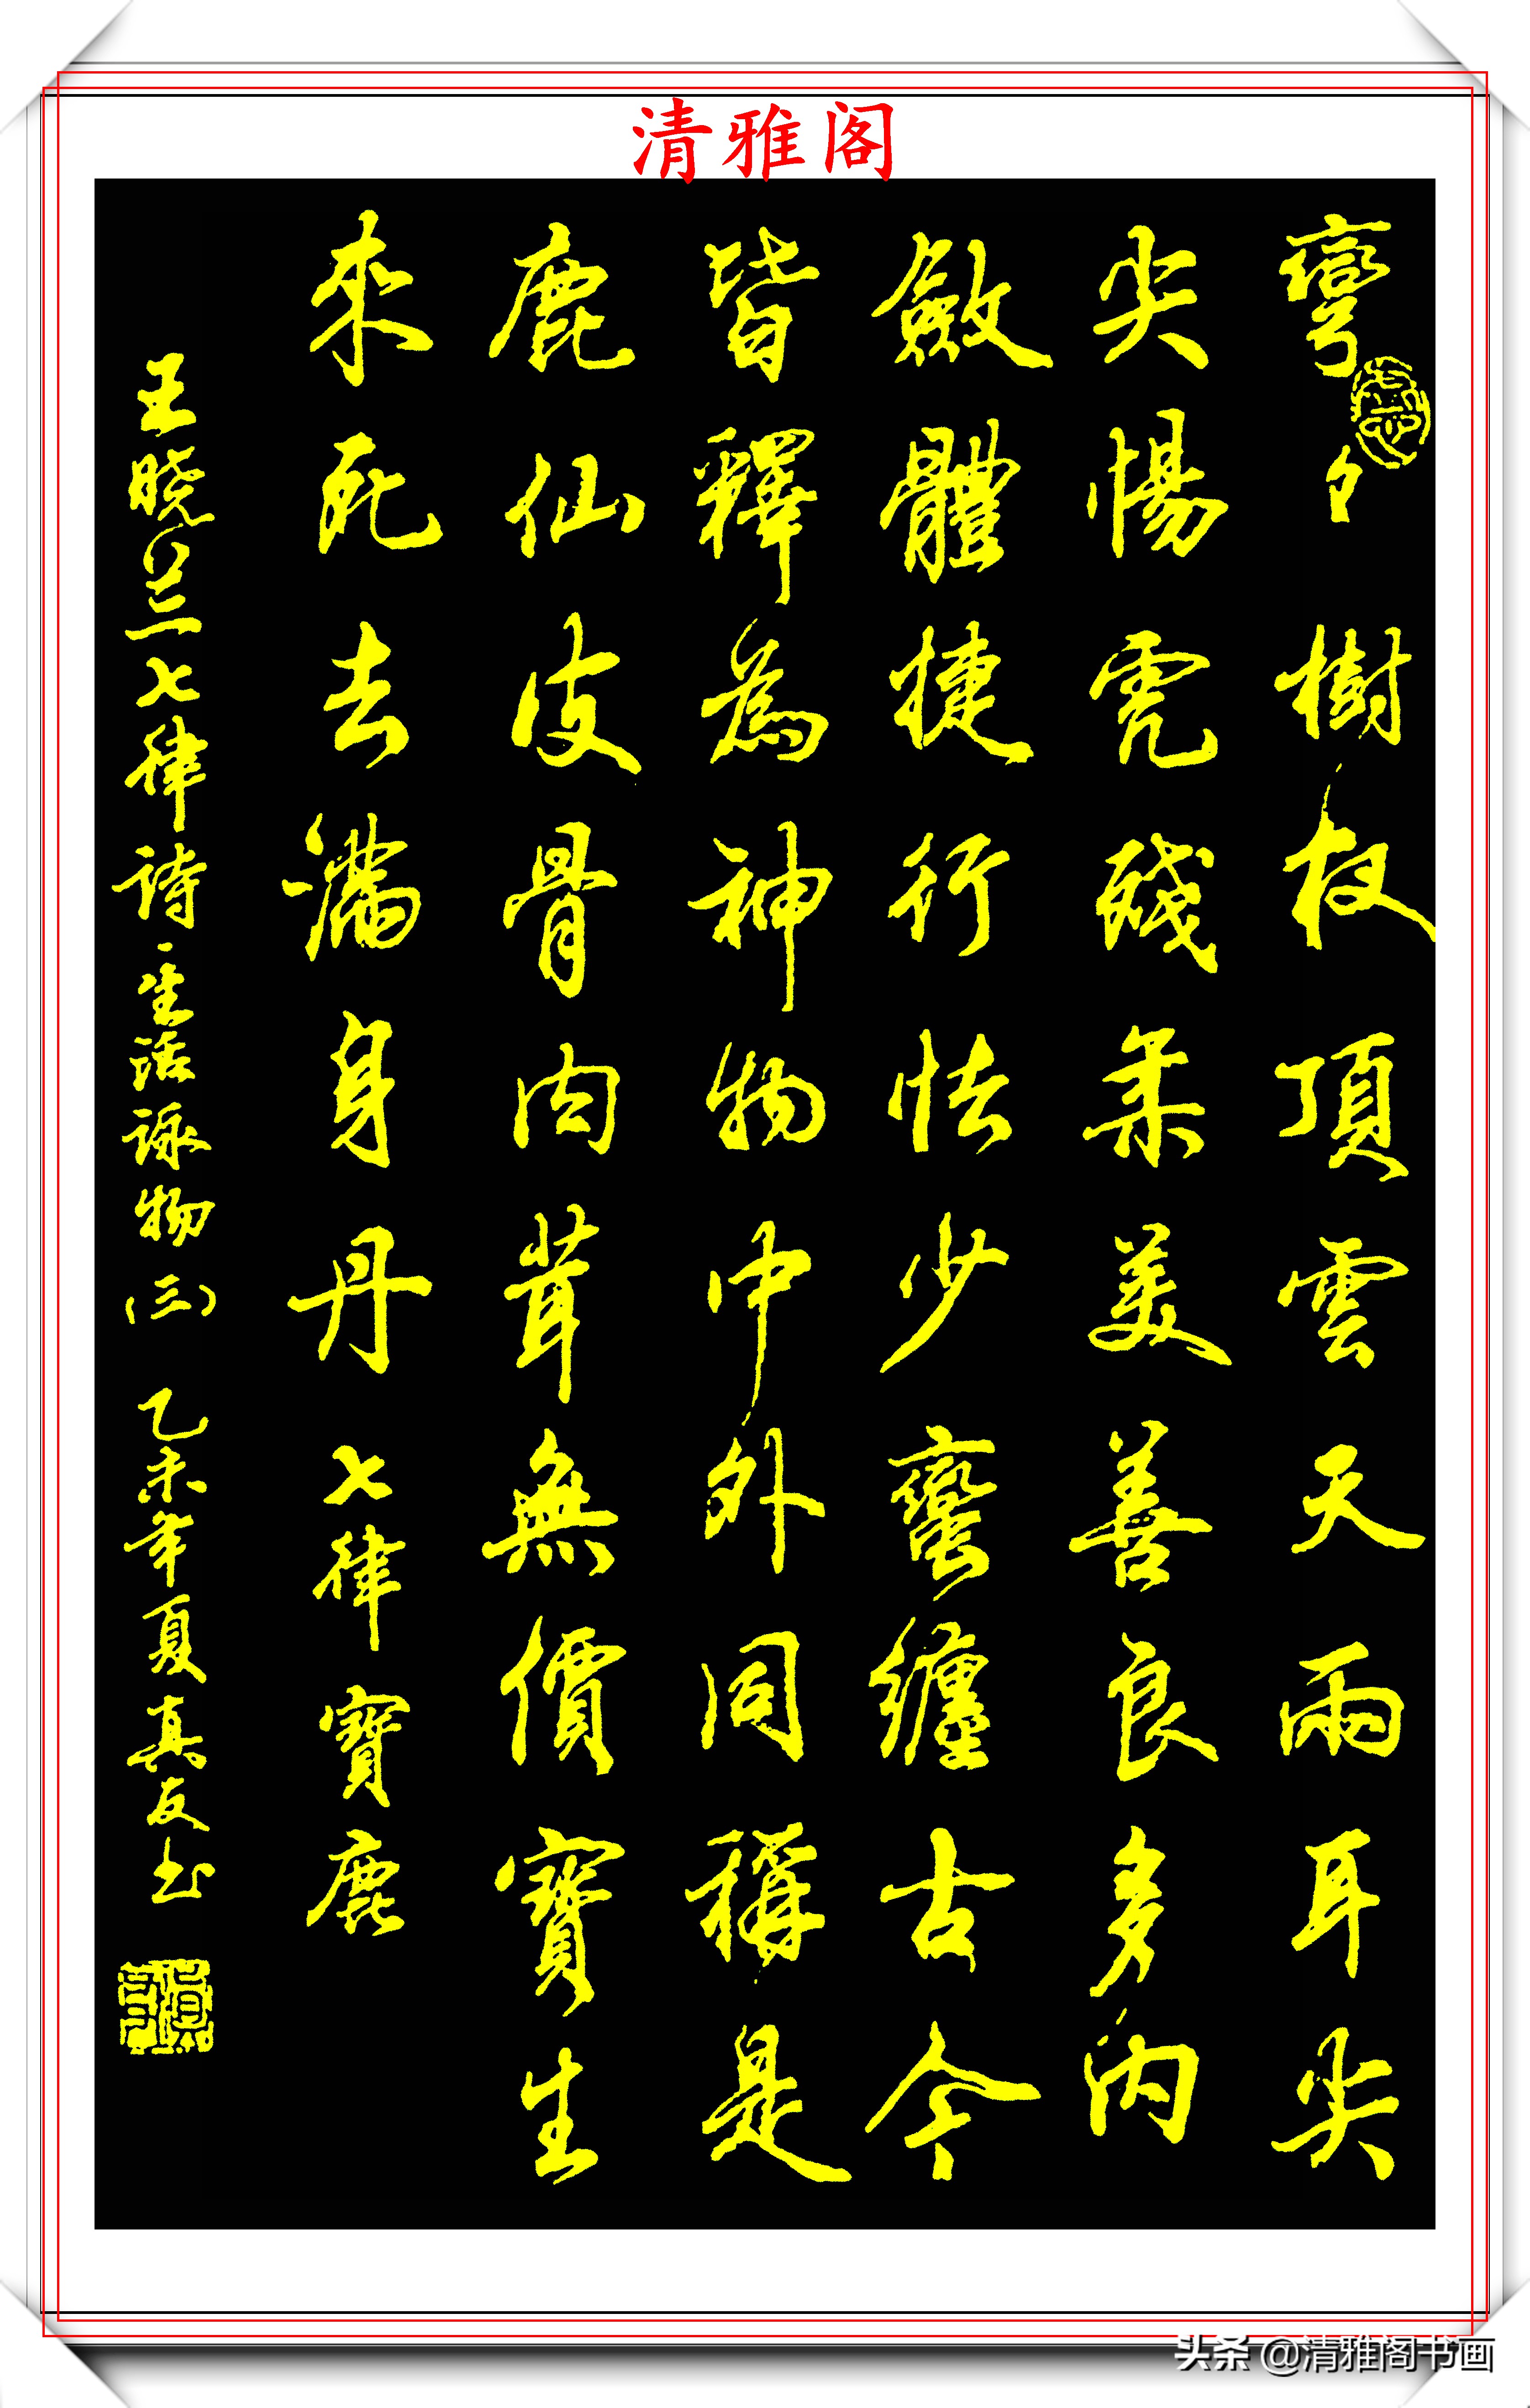 清雅阁
彎々樹枝頂雲天兩耳尖
尖惕虎殘柔美善良多内
斂體捷行怯少蠻纏古今
皆釋為神物中外同稱是
鹿仙皮骨肉茸無價寶生
來死去滿身丹 七律寶鹿
王晓兰七律诗·生活詠物(三) 乙未年夏真友书
头条 @清雅阁书画